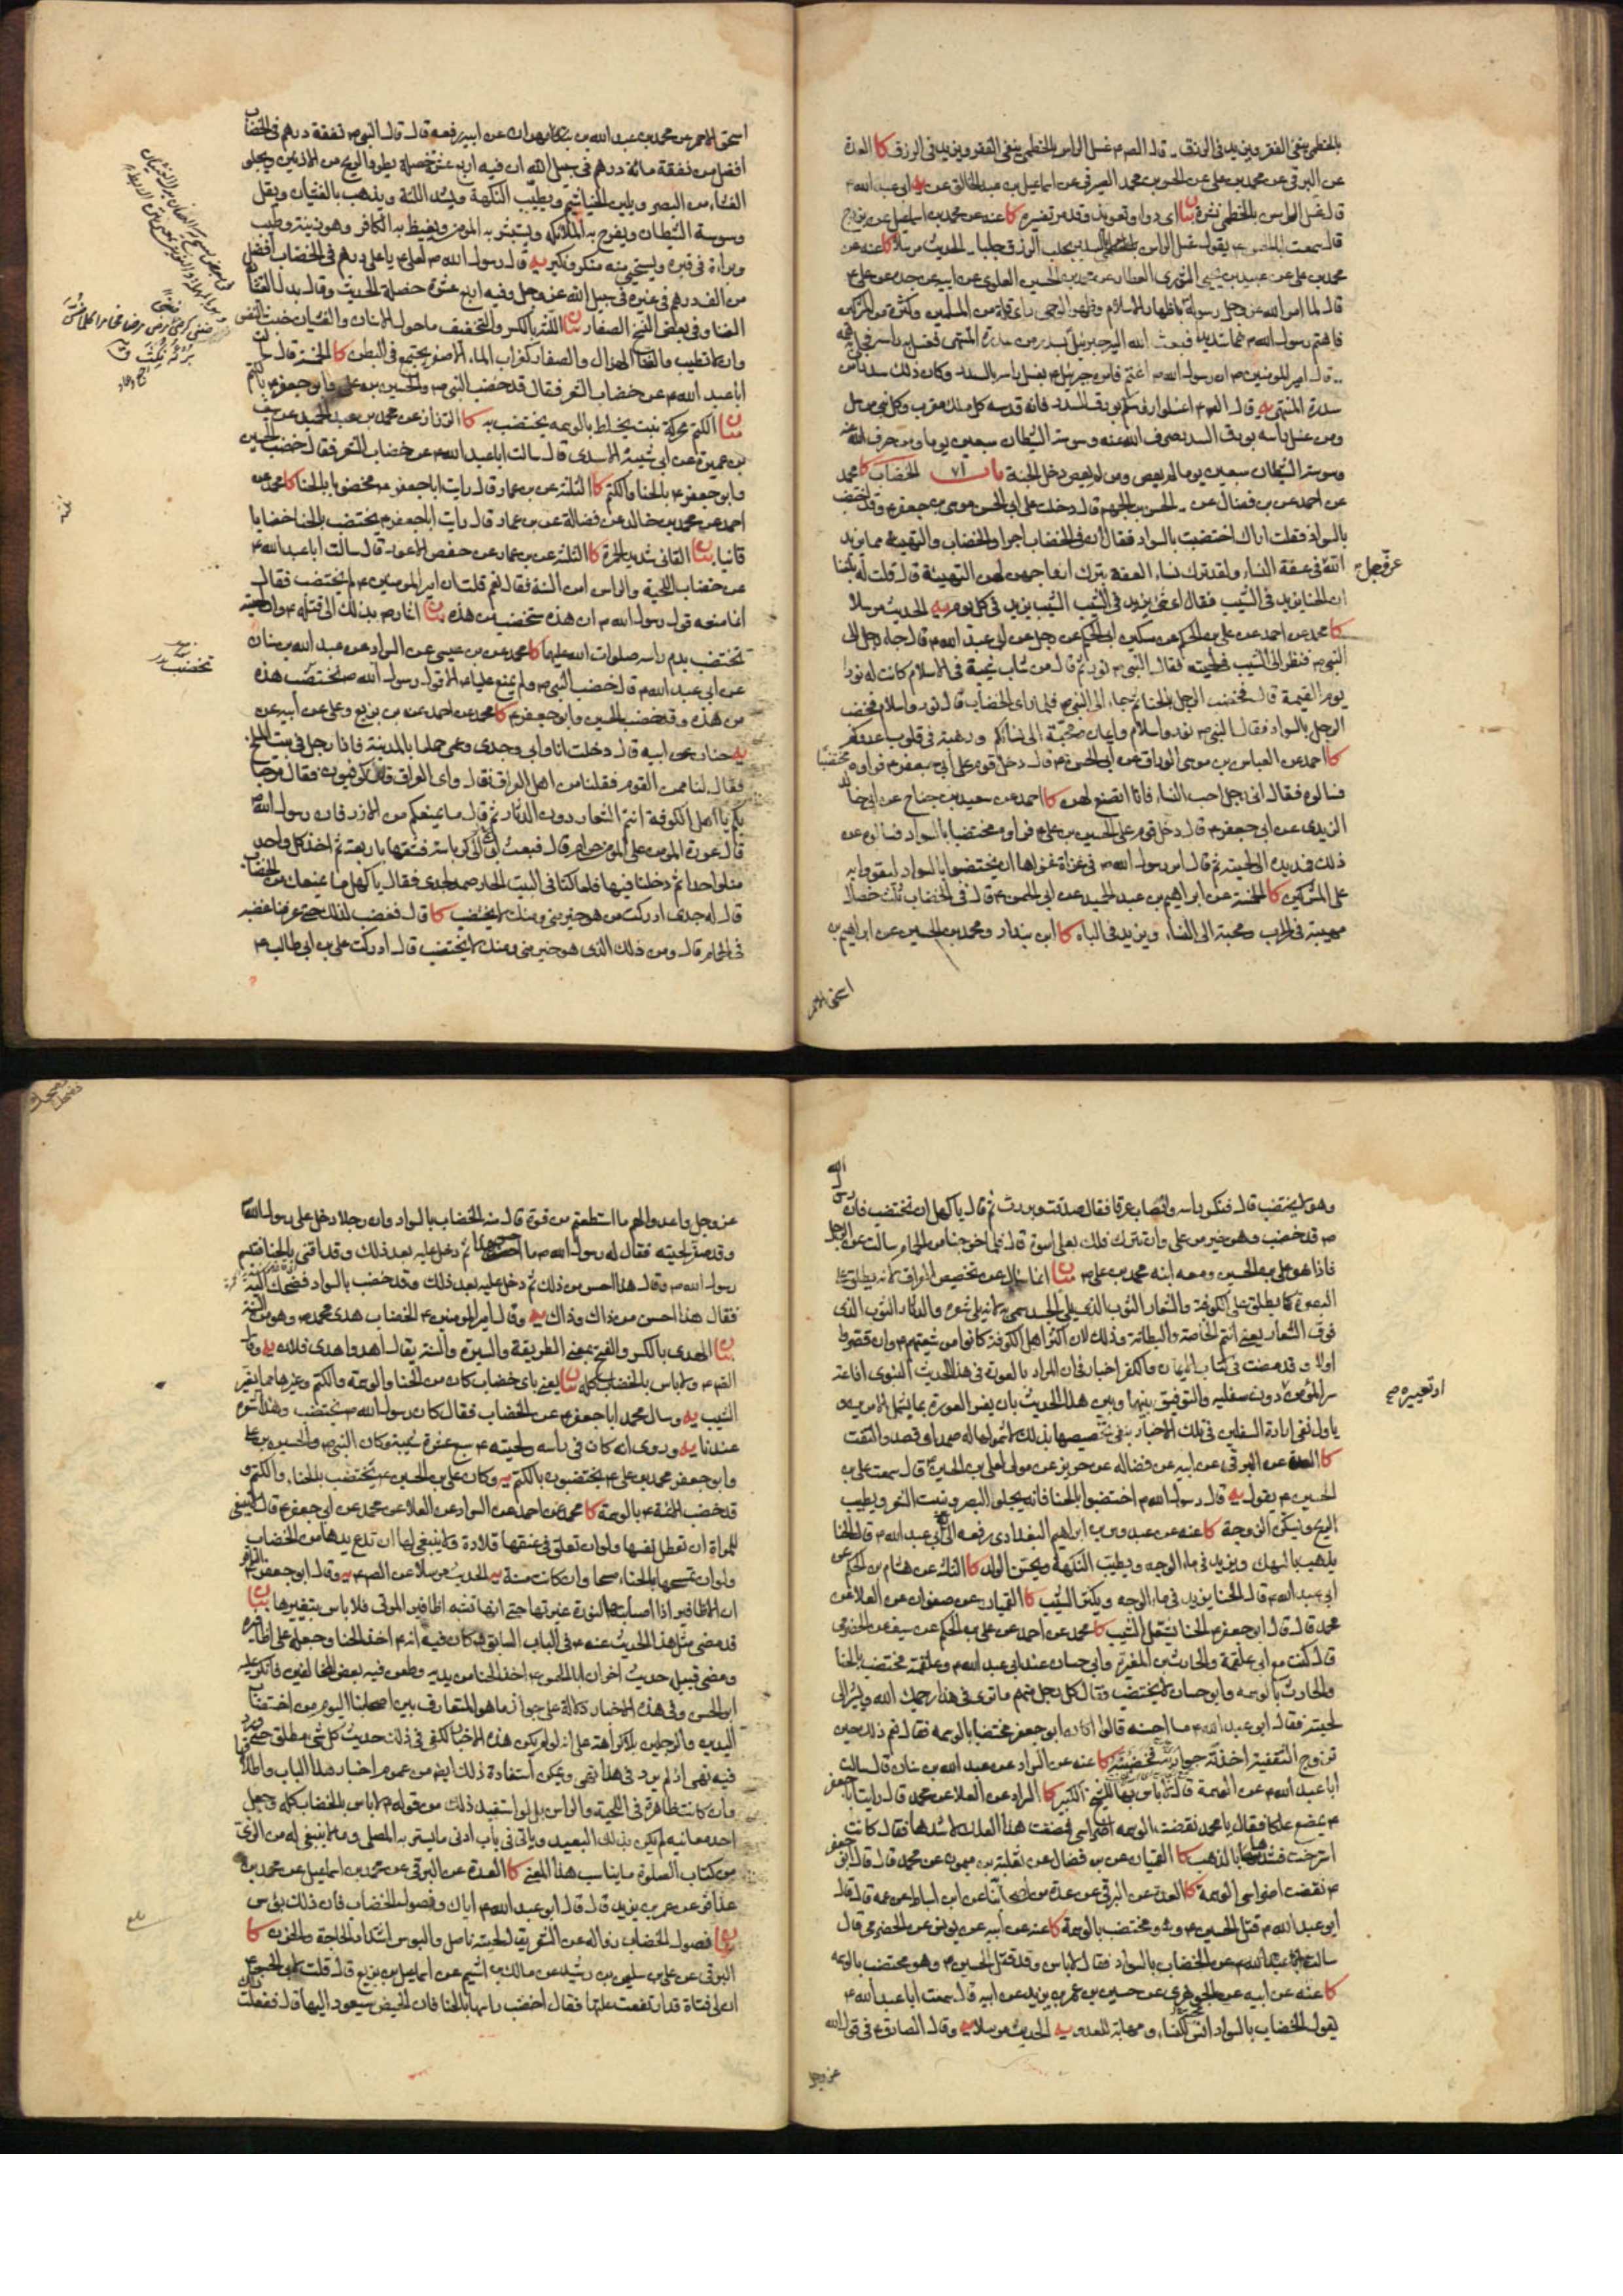 بالخطمي ينفي الفقر ويزيد في الرزق قال الصم غسل الراس بالخطمي ينفي الفقر ويزيد في الرزق كا العدة
عن البرقي عن محمد بن علي عن الحسن بن محمد الصيرفي عن اسماعيل بن عبد الخالق عن ابي عبد الله ع
قال غسل الراس بالخطمي نشرة بيان اي دواء وتعويذ وقد مر تفسيره كا عنه عن محمد بن اسمعيل عن بزرج
قال سمعت ابا الحسن ع يقول غسل الراس بالسدر يجلب الرزق جلبا الحديث مرسلا كا عنه عن
محمد بن علي عن عبيد بن يحيى الثوري العطار عن محمد بن الحسين العلوي عن ابيه عن جده عن علي ع
قال لما امر الله عز وجل رسوله باظهار الاسلام وظهر الوحي راى قلة من المسلمين وكثرة من المشركين
فاهتم رسول الله ص هما شديدا فبعث الله اليه جبرئيل بسدر من سدرة المنتهى فغسل به راسه فجلى به همه
قال امير المومنين ع ان رسول الله ص اغتم فامره جبرئيل ع بغسل راسه بالسدر وكان ذلك سدرا من
سدرة المنتهى يه قال الصم اغسلوا رؤسكم بورق السدر فانه قدسه كل ملك مقرب وكل نبي مرسل
ومن غسل راسه بورق السدر صرف الله عنه وسوسة الشيطان سبعين يوما ومن صرف الله عنه
وسوسة الشيطان سبعين يوما لم يعص ومن لم يعص دخل الجنة باب ٧١ الخضاب كا محمد
عن احمد عن بن فضال عن الحسن بن الجهم قال دخلت على ابي الحسن موسى بن جعفر ع وقد اختضب
بالسواد فقلت اراك اختضبت بالسواد فقال ان في الخضاب اجرا والخضاب والتهيئة مما يزيد
الله في عفة النساء ولقد ترك نساء العفة بترك ازواجهن لهن التهيئة قال قلت له بلغنا
عز وجل
ان الحنا يزيد في الشيب فقال اي شي يزيد في الشيب الشيب يزيد في كل يوم يه الحديث مرسلا
كا محمد عن احمد عن علي بن الحكم عن مسكين ابي الحكم عن رجل عن ابي عبد الله ع قال جاء رجل الى
النبي ص فنظر الى الشيب في لحيته فقال النبي ص نور ثم قال من شاب شيبة في الاسلام كانت له نورا
يوم القيمة قال فخضب الرجل بالحنا ثم جاء الى النبي ص فلما راى الخضاب قال نور واسلام فخضب
الرجل بالسواد فقال النبي ص نور واسلام وايمان ومحبة الى نسائكم ورهبة في قلوب عدوكم
كا احمد عن العباس بن موسى الوراق عن ابي الحسن ع قال دخل قوم على ابي جعفر ع فراوه مختضبا
فسالوه فقال اني رجل احب النساء فانا اتصنع لهن كا احمد عن سعيد بن جناح عن ابي خالد
الزيدي عن ابي جعفر ع قال دخل قوم على الحسين بن علي ع فراوه مختضبا بالسواد فسالوه عن
ذلك فمد يده الى لحيته ثم قال امر رسول الله ص في غزاة غزاها ان يختضبوا بالسواد ليقووا به
على المشركين كا الخمسة عن ابراهيم بن عبد الحميد عن ابي الحسن ع قال في الخضاب ثلث خصال
مهيبة في الحرب ومحبة الى النساء ويزيد في الباه كا ابن بندار ومحمد بن الحسين عن ابراهيم بن
اسحق الاحمر
اسحق الاحمر عن محمد بن عبد الله بن مهران عن ابيه رفعه قال قال النبي ص نفقة درهم في الخضاب
افضل من نفقة مائة درهم في سبيل الله ان فيه اربع عشرة خصلة يطرد الريح من الاذنين ويجلو
الغشاء من البصر ويلين الخياشيم ويطيب النكهة ويشد اللثة ويذهب بالغشيان ويقل
وسوسة الشيطان ويفرح به الملائكة ويستبشر به المومن ويغيظ به الكافر وهو زينة وطيب
وبراءة في قبره ويستحيي منه منكر ونكير يه قال رسول الله ص لعلي ع يا علي درهم في الخضاب افضل
من الف درهم في غيره في سبيل الله عز وجل وفيه اربع عشرة خصلة الحديث وقال بدل الغشيان
الضنا وفي بعض النسخ الصفار بيان اللثة بالكسر والتخفيف ماحول الاسنان والغشيان خبث النفس
وان لا تطيب والضنا الهزال والصفار كغراب الماء الاصفر يجتمع في البطن كا الخمسة قال سالت
ابا عبد الله ع عن خضاب الشعر فقال قد خضب النبي ص والحسين بن علي وابو جعفر ع بالكتم
بيان الكتم محركة نبت يخلط بالوسمة يختضب به كا القزاز عن محمد بن عبد الحميد عن سيف
بن عميرة عن ابي شيبة الاسدي قال سالت ابا عبد الله ع عن خضاب الشعر فقال خضب الحسين
وابو جعفر ع بالحنا والكتم كا الثلثة عن بن عمار قال رايت ابا جعفر ع مخضوبا بالحنا كا محمد عن
احمد عن محمد بن خالد عن فضالة عن بن عمار قال رايت ابا جعفر ع يختضب بالحنا خضابا
قانيا بيان القاني شديد الحمرة كا الثلثة عن بن عمار عن حفص الاعور قال سالت ابا عبد الله ع
عن خضاب اللحية والراس امن السنة فقال نعم قلت ان امير المومنين ع لم يختضب فقال
انما منعه قول رسول الله ص ان هذه ستخضب من هذه بيان اشار ص بذلك الى قتله ع وان لحيته
تختضب بدم راسه صلوات الله عليها كا محمد عن بن عيسى عن السراد عن عبد الله بن سنان
ستخضب
عن ابي عبد الله ع قال خضب النبي ص ولم يمنع عليا ع الا قول رسول الله ص تختضب هذه
من هذه وقد خضب الحسين وابو جعفر ع كا محمد عن احمد عن بن بزيع وعلي عن ابيه عن
يه حنان عن ابيه قال دخلت انا وابي وجدي وعمي حماما بالمدينة فاذا رجل في بيت المسلخ
فقال لنا ممن القوم فقلنا من اهل العراق فقال واي العراق قلنا كوفيون فقال مرحبا
بكم يا اهل الكوفة انتم الشعار دون الدثار ثم قال ما يمنعكم من الازر فان رسول الله ص
قال عورة المومن على المومن حرام قال فبعث ابي الى كرباسة فشقها باربعة ثم اخذ كل واحد
منا واحدا ثم دخلنا فيها فلما كنا في البيت الحار صمد لجدي فقال يا كهل ما يمنعك من الخضاب
قال له جدي ادركت من هو خير مني ومنك لا يختضب كا قال فغضب لذلك حتى عرفنا غضبه
في الحمام قال ومن ذلك الذي هو خير مني ومنك لا يختضب قال ادركت علي بن ابي طالب ع
وهو لا يختضب قال فنكس راسه وتصاب عرقا فقال صدقت وبررت ثم قال يا كهل ان تختضب فان رسول الله
ص قد خضب وهو خير من علي وان تترك فلك بعلي اسوة قال فلما خرجنا من الحمام سالت عن الرجل
فاذا هو علي بن الحسين ومعه ابنه محمد بن علي ع بيان انما سال عن تخصيص العراق لانه يطلق على
البصرة كما يطلق على الكوفة والشعار الثوب الذي يلي الجسد سمي به لانه يلي شعره والدثار الثوب الذي
فوق الشعار يعني انتم الخاصة والبطانة وذلك لان اكثر اهل الكوفة كانوا من شيعتهم ع وان قصروا
اولا وقد مضت في كتاب الايمان والكفر اخبار في ان المراد بالعورة في هذا الحديث النبوي اذاعة
سر المؤمن دون سفليه والتوفيق بينها وبين هذا الحديث بان يفسر العورة بما يشمل الامرين و
او تعييره صح
ياول نفي ارادة السفلين في تلك الاخبار بنفي تخصيصها بذلك لا شمولها له صمد اي قصد والتفت
كا العدة عن البرقي عن ابيه عن فضالة عن حريز عن مولى لعلي بن الحسين ع قال سمعت علي بن
الحسين ع يقول يه قال رسول الله ص اختضبوا بالحنا فانه يجلو البصر وينبت الشعر ويطيب
الريح ويسكن الزوجة كا عنه عن عبدوس بن ابراهيم البغدادي رفعه الى ابي عبد الله ع قال الحنا
يذهب بالسهك ويزيد في ماء الوجه ويطيب النكهة ويحسن الولد كا الثلثة عن هشام بن الحكم عن
ابي عبد الله ع قال الحنا يزيد في ماء الوجه ويكثر الشيب كا القميان عن صفوان عن العلا عن
محمد قال قال ابو جعفر ع الحنا يشعل الشيب كا محمد عن احمد عن علي بن الحكم عن سيف عن الحضرمي
قال كنت مع ابي علقمة والحارث بن المغيرة وابي حسان عند ابي عبد الله ع وعلقمة مختضب بالحنا
والحارث بالوسمة وابو حسان لا يختضب فقال كل رجل منهم ما ترى في هذا رحمك الله واشار الى
لحيته فقال ابو عبد الله ع ما احسنه قالوا اكان ابو جعفر مختضبا بالوسمة فقال نعم ذلك حين
تزوج الثقفية اخذته جواريها فخضبنه كا عنه عن السراد عن عبد الله بن سنان قال سالت
ابا عبد الله ع عن الوسمة قال لا باس بها للشيخ الكبير كا السراد عن العلا عن محمد قال رايت ابا جعفر
ع يمضغ علكا فقال يا محمد نقضت الوسمة اضراسي فمضغت هذا العلك لاشدها فقال كانت
استرخت فشدها بالذهب كا القميان عن بن فضال عن ثعلبة بن ميمون عن محمد قال قال ابو جعفر
ع نقضت اضراسي الوسمة كا العدة عن البرقي عن عدة من اصحابنا عن ابن اسباط عن عمه قال قال
ابو عبد الله ع قتل الحسين ع وهو مختضب بالوسمة كا عنه عن ابيه عن يونس عن الحضرمي قال
سالت ابا عبد الله ع عن الخضاب بالسواد فقال لا باس وقد قتل الحسين ع وهو مختضب بالوسمة
كا عنه عن ابيه عن الجوهري عن حسين بن عمر بن يزيد عن ابيه قال سمعت ابا عبد الله ع
يقول الخضاب بالسواد انس للنساء ومهابة للعدو يه الحديث مرسلا يه وقال الصادق ع في قول الله
عز وجل
عز وجل واعدوا لهم ما استطعتم من قوة قال منه الخضاب بالسواد وان رجلا دخل على رسول الله ص
وقد صفر لحيته فقال له رسول الله ص ما احسن هذا ثم دخل عليه بعد ذلك وقد اقنى بالحنا فتبسم
رسول الله ص وقال هذا احسن من ذلك ثم دخل عليه بعد ذلك وقد خضب بالسواد فضحك اليه
فقال هذا احسن من ذاك وذاك يه وقال امير المومنين ع الخضاب هدي محمد ص وهو من السنة
بيان الهدى بالكسر والفتح بمعنى الطريقة والسيرة والسنة يقال هدى هدي فلان يه وقال
الصم ع لا باس بالخضاب كله بيان يعني باي خضاب كان من الحنا والوسمة والكتم وغيرها مما يغير
الشيب يه وسال محمد ابا جعفر ع عن الخضاب فقال كان رسول الله ص يختضب وهذا شعره
عندنا يه وروي انه كان في راسه ولحيته ع سبع عشرة شيبة وكان النبي ص والحسين بن علي
وابو جعفر محمد بن علي ع يختضبون بالكتم يه وكان علي بن الحسين ع يختضب بالحنا والكتم و
قد خضب الائمة ع بالوسمة كا محمد عن احمد عن السراد عن العلا عن محمد عن ابي جعفر ع قال لا ينبغي
للمراة ان تعطل نفسها ولو ان تعلق في عنقها قلادة ولا ينبغي لها ان تدع يدها من الخضاب
ولو ان تمسحها بالحناء مسحا وان كانت مسنة يه الحديث مرسلا عن الصم ع يه وقال ابو جعفر ع
ان الاظافير اذا اصابتها النورة غيرتها حتى انها تشبه اظافير الموتى فلا باس بتغييرها بيان
قد مضى مثل هذا الحديث عنه ع في الباب السابق وكان فيه انه ع اخذ الحنا وجعله على اظافيره
ومضى قبيله حديث اخر ان ابا الحسن ع اخذ الحنا من يديه وطعن فيه بعض المخالفين فانكر عليه
ابو الحسن وفي هذه الاخبار دلالة على جواز ما هو المتعارف بين اصحابنا اليوم من اختضاب
اليدين والرجلين بلا كراهة على انه لو لم يكن هذه الاخبار لكفى في ذلك حديث كل شي مطلق حتى يرد
فيه نهي اذ لم يرد في هذا نهي ويمكن استفادة ذلك ايضا من عموم اخبار هذا الباب واطلاقها
وان كانت ظاهرة في اللحية والراس بل لو استفيد ذلك من قوله ع لا باس بالخضاب كله وجعل
احد معانيه لم يكن بذلك البعيد وياتي في باب ادنى ما يستر به المصلي وما لا ينبغي له من الزي
من كتاب الصلوة ما يناسب هذا المعنى كا العدة عن البرقي عن محمد بن اسماعيل عن محمد بن
عذافر عن عمر بن يزيد قال قال ابو عبد الله ع اياك ونصول الخضاب فان ذلك بؤس
بيان نصول الخضاب زواله عن الشعر يقال لحيته ناصل والبوس اشتداد الحاجة والحزن كا
البرقي عن علي بن سليمان بن رشيد عن مالك بن اشيم عن اسماعيل بن بزيع قال قلت لابي الحسن ع
ان لي فتاة قد ارتفعت علتها فقال اخضب راسها بالحنا فان الحيض سيعود اليها قال ففعلت